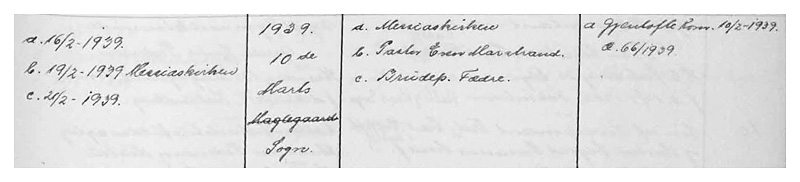 a. 16/2-1939.
b. 19/2-1939 Messiaskirken
c. 21/2-1939.
1939.
10 de
Marts
Maglegaards
Sogn.
a. Messiaskirken
b. Pastor Even Marstrand.
c. Brudep. Fædre.
a Gjentofte Kom. 10/2-1939.
æ. 66/1939.